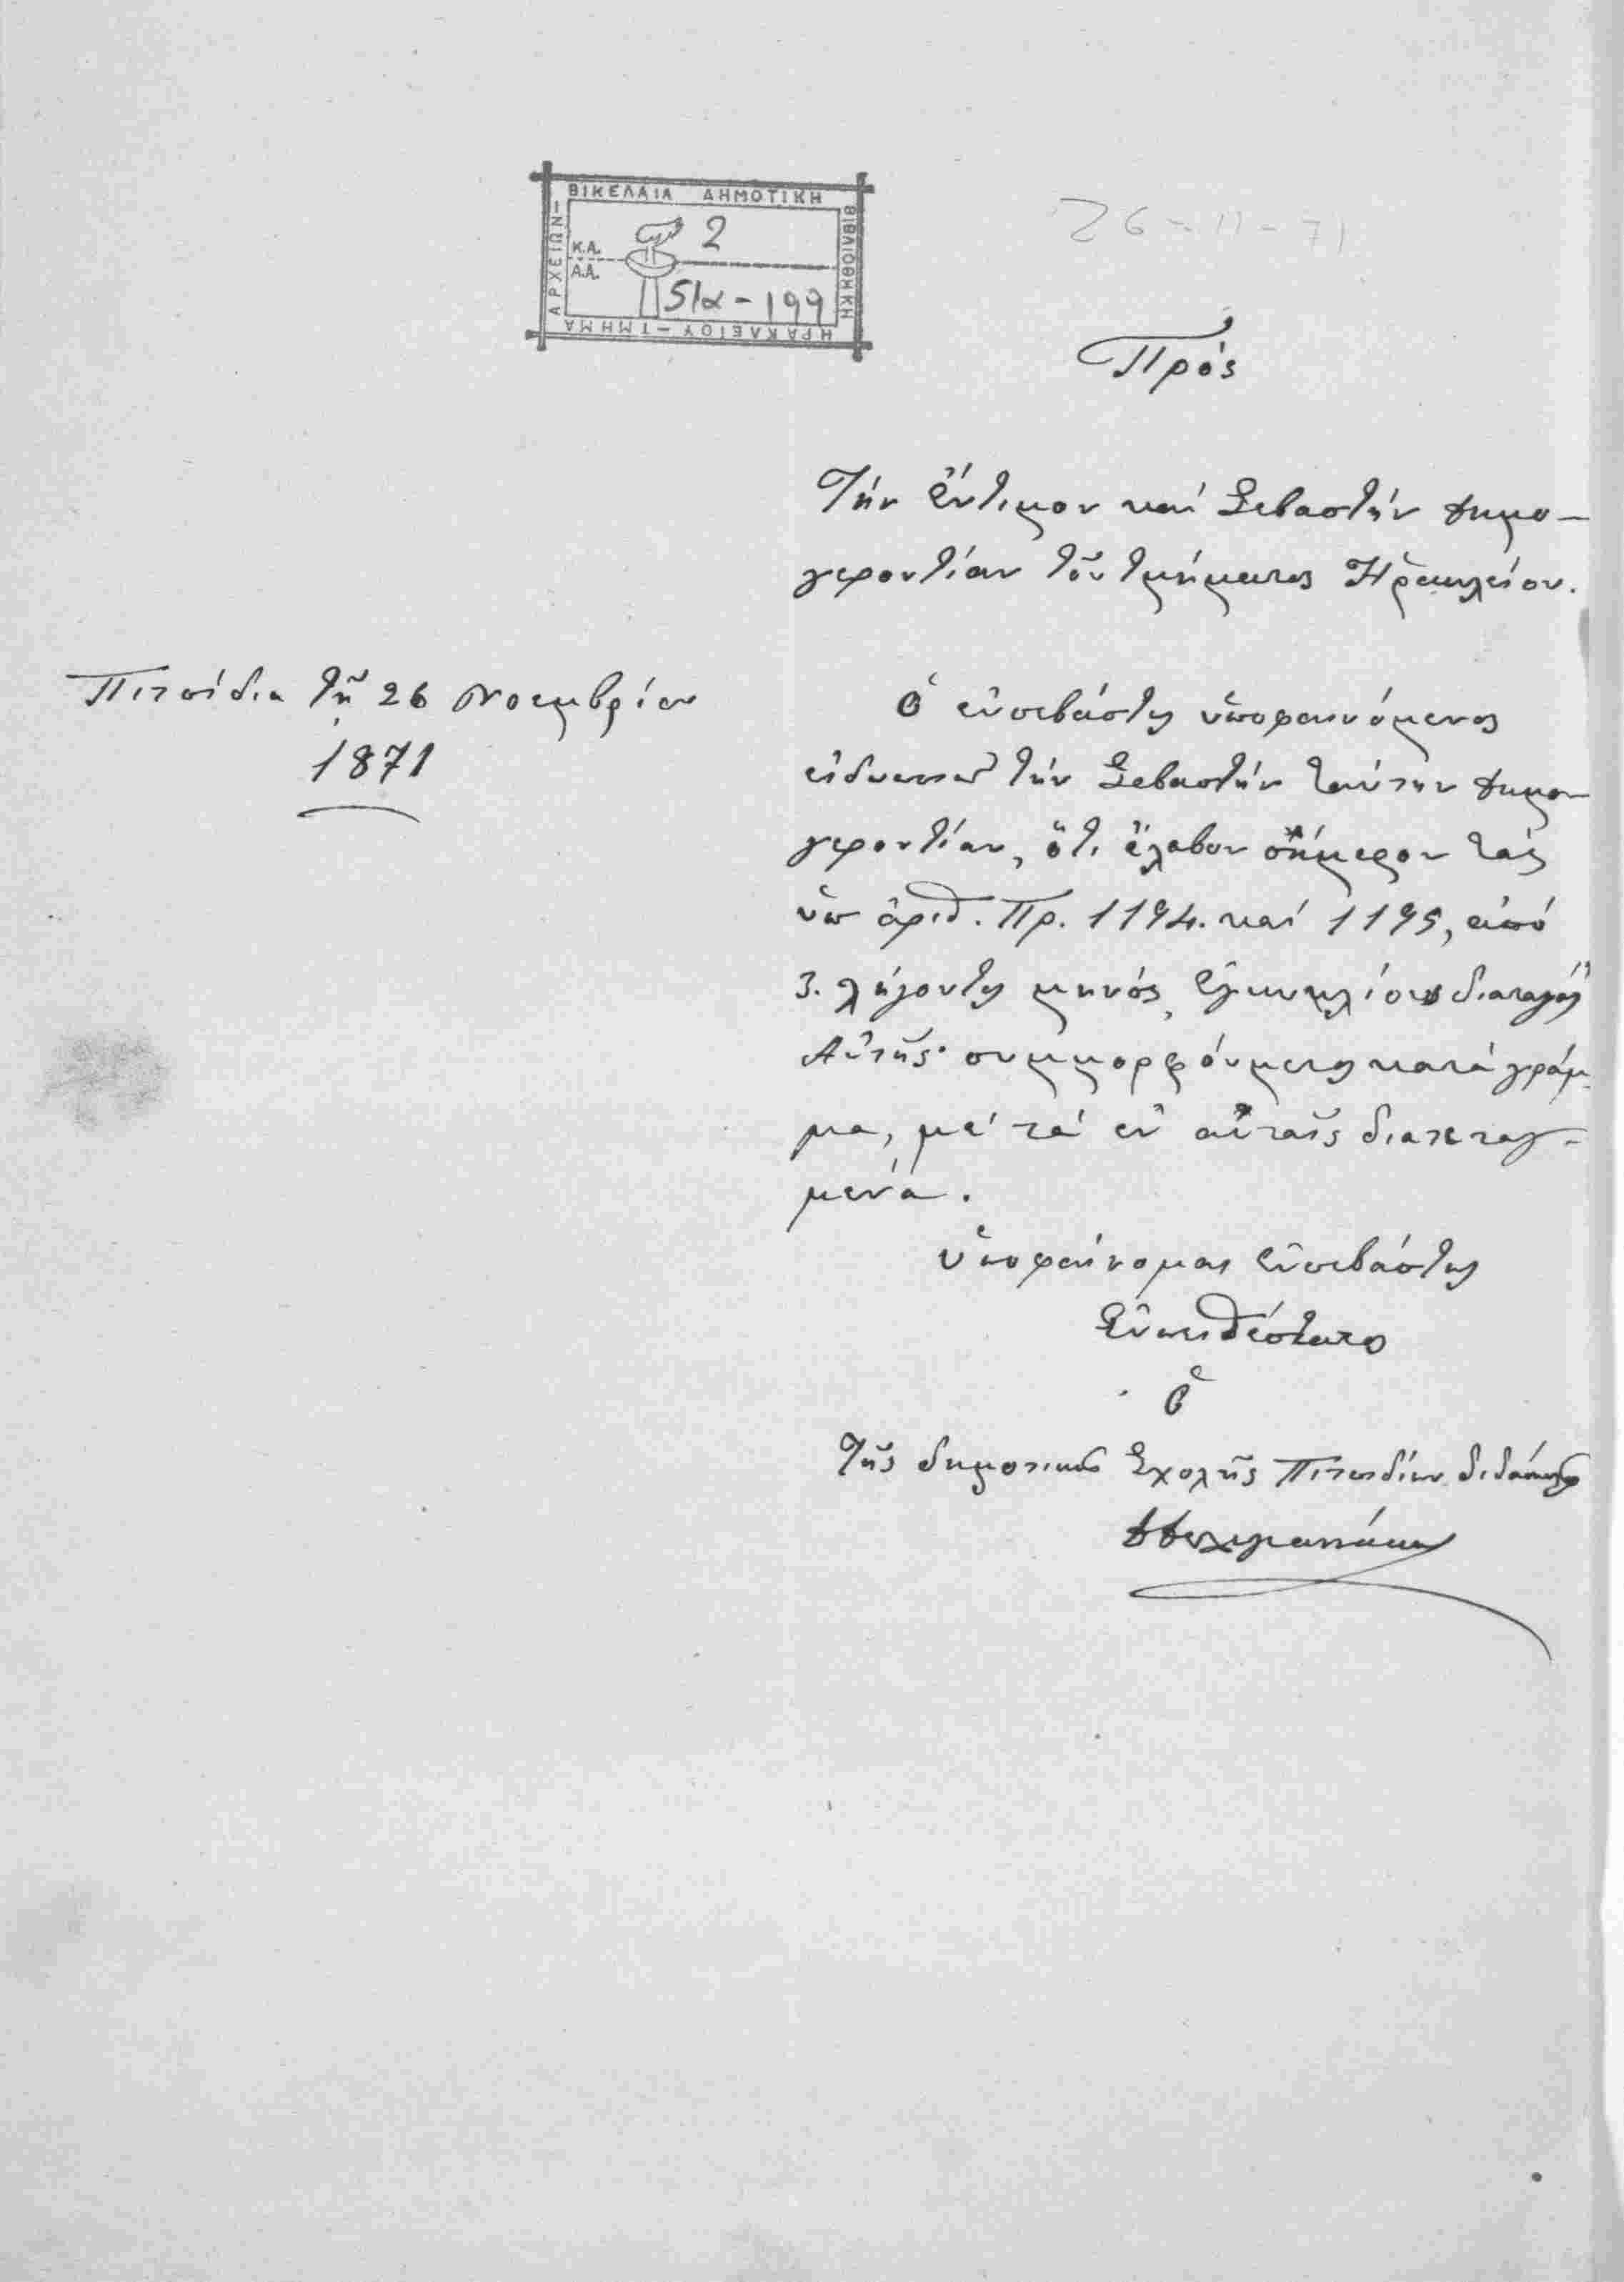 ΒΙΚΕΛΑΙΑ ΔΗΜΟΤΙΚΗ
ΒΙΒΛΙΟΘΗΚΗ
ΗΡΑΚΛΕΙΟΥ - ΤΜΗΜΑ
ΑΡΧΕΙΩΝ -
Κ.Α. 2
Α.Α. 51α - 199
26-11-71
Πρός
Τήν Ἔντιμον καί Σεβαστήν Δημο-
γεροντίαν τοῦ τμήματος Ἡρακλείου.
Πιτσίδια τῇ 26 Νοεμβρίου
1871
Ὁ εὐσεβάστως ὑποφαινόμενος
εἰδοποιῶ τήν Σεβαστήν ταύτην Δημο-
γεροντίαν, ὅτι ἔλαβον σήμερον τάς
ὑπ ἀριθ. Πρ. 1194. καί 1195, ἀπό
3. λήγοντος μηνός, ἐγκυκλίους διαταγάς
Αὐτῆς· συμμορφούμενος κατά γράμ-
μα, μέ τά ἐν αὐταῖς διατεταγ-
μενά.
Ὑποφαίνομαι εὐσεβάστως
Εὐπειθέστατος
Ὁ
Τῆς δημοτικῆς Σχολῆς Πιτσιδίων διδάσκαλος